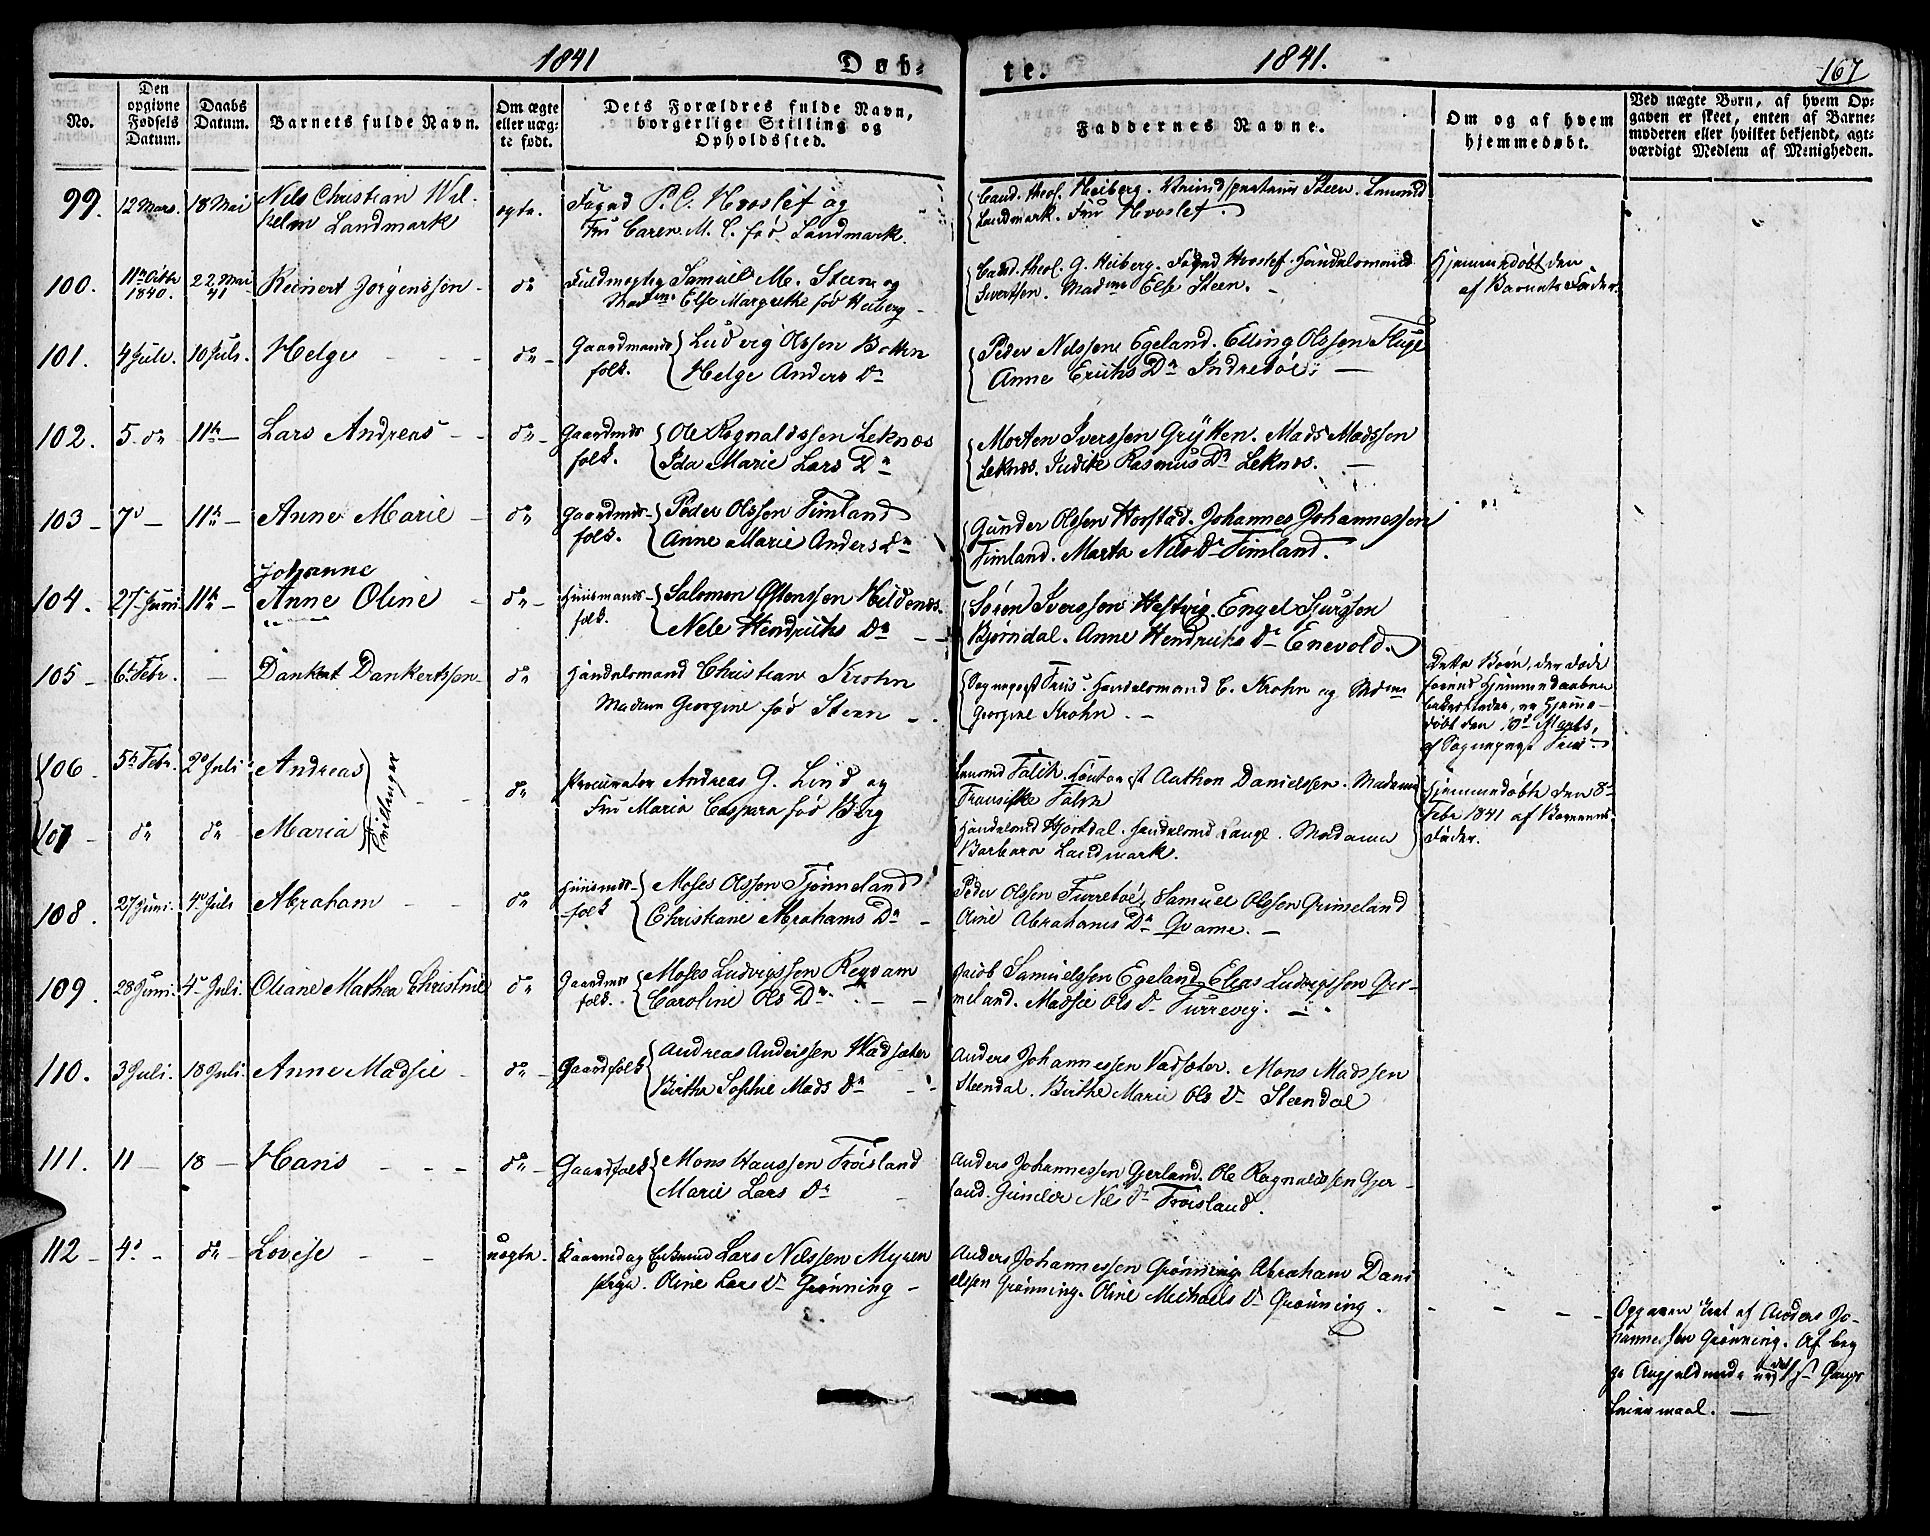 1841 Døb-
te. 1841. 167
No.
Den opgivne Fødsels Datum.
Daabs Datum.
Barnets fulde Navn.
Om ægte eller uæg-te født.
Dets Forældres fulde Navn, borgerlige Stilling og Opholdssted.
Faddernes Navne.
Om og af hvem hjemmedøbt.
Ved uægte Børn, af hvem Op-
gaven er skeet, enten af Barne-
moderen eller hvilket bekjendt, agt-
værdigt Medlem af Menigheden.
99. 12 Mars. 18 Mai Nils Christian Wil-
helm Landmark
ægte. Foged P. C. Hvoslef og
Fru Caren M. C. fød Landmark.
Cand. theol. Heiberg. Steen. Lmand
Landmark. Fru Hvoslef.
100. 11te Octbr 1840. 22 Mai 41 Reinert Jørgenssøn do
Fuldmægtig Samuel M. Steen og
Madme Else Margrethe fød Heiberg
Cand. theol. G. Heiberg. Foged Hvoslef. Handelsmand
Sivertsen. Madme Else Steen.
Hjemmedøbt den
af Barnets Fader.
101. 4 Jule. 10 Juli. Helge do
Gaardmands folk. Ludvig Olssen Botten
Helge Anders Dr
Peder Nilssen Egeland. Elling Olssen Fluge
Anne Erichs Dr Indrebøe;
102. 5. do 11te Lars Andreas do
Gaardmds folk. Ole Rognaldssen Leknæs
Ida Marie Lars Dr
Morten Iverssen Grytten. Mads Madssen
Leknæs. Judite Rasmus Dr Leknæs.
103 7de 11te Anne Marie do
Gaardmds folk. Peder Olssen Timland
Anne Marie Anders Dr
Gunder Olssen Horstad. Johannes Johannessen
Timland. Marta Nils Dr Timland.
104. 27 Juni 11te Johanne
Anne Oline do
Huusmands folk. Salomon Ostenssen Hildenes.
Nele Hendrichs Dr
Søren Iverssen Hestvig. Engel Siurssen
Bjørndal. Anne Hendrichs Dr Enevold.
105 6te Febr. Dankert Dankertssen do
Handelsmand Christian Krohn
Madam Georgine fød Steen
Sognepræst Friis. Handelsmand C. Krohn og Madme
Georgine Krohn.
Dette Barn, der døde
døbt den Marts,
af Sognepræst Friis.
106. 5te Febr. 2 Juli Andreas Tvillinger do
Procurator Andreas G. Lind og
Fru Maria Caspara fød Berg
Lmand Falch. Danielsen. Madame
Fransiske Falch
Hjemmedøbte den 8de
Febr 1841 af Barnenes
Fader.
107 do do Maria
Handelsmd Hjortdal. Handelsmd Lange. Madame
Barbara Landmark.
108. 27 Juni. 4 Juli Abraham do
Huusmds folk Moses Olssen Tjønneland
Christiane Abrahams Dr
Peder Olssen Furrebøe; Samuel Olssen Grimeland
Oline Abrahams Dr Qvame.
109. 28 Juni. 4 Juli. Oliane Mathea Christine do
Gaardmds folk. Moses Ludvigssen Reqvam
Caroline Ols Dr.
Jacob Samuelssen Egeland. Elias Ludvigssen Gri-
meland. Madsie Ols Dr Furrevig.
110. 3 Juli. 18 Juli. Anne Madsie do
Gaardfolk Andreas Anderssen Wadsæter
Birthe Sophie Mads Dr
Anders Johannessen Vadsæter. Mons Madssen
Steendal. Birthe Marie Ols Dr Steendal
111. 11 18 Hans do
Gaardfolk Mons Hanssen Frøisland
Marie Lars Dr
Anders Johannessen Gjerland. Ole Rognaldssen Gjer-
land. Nils Dr Frøisland.
112 4de do Lovise uægte.
Lars Nilssen Myren
pige. Oline Lars Dr Grønning
Anders Johannessen Grønning. Abraham Dani-
elssen Grønning. Oline Michaels Dr Grønning.
Opgaven skeet af Anders Jo-
hannessen Grønning. Af beg-
ge
Leiermaal.